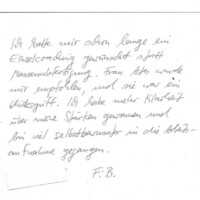 Ich habe mir schon lange ein
Einzelcoaching gewünscht statt
Massenabfertigung. Frau Ates wurde
mir empfohlen, und sie war ein
Glücksgriff. Ich habe mehr Klarheit
über meine Stärken gewonnen und
bin viel selbstbewusster in die Arbeits-
aufnahme gegangen.
F.B.